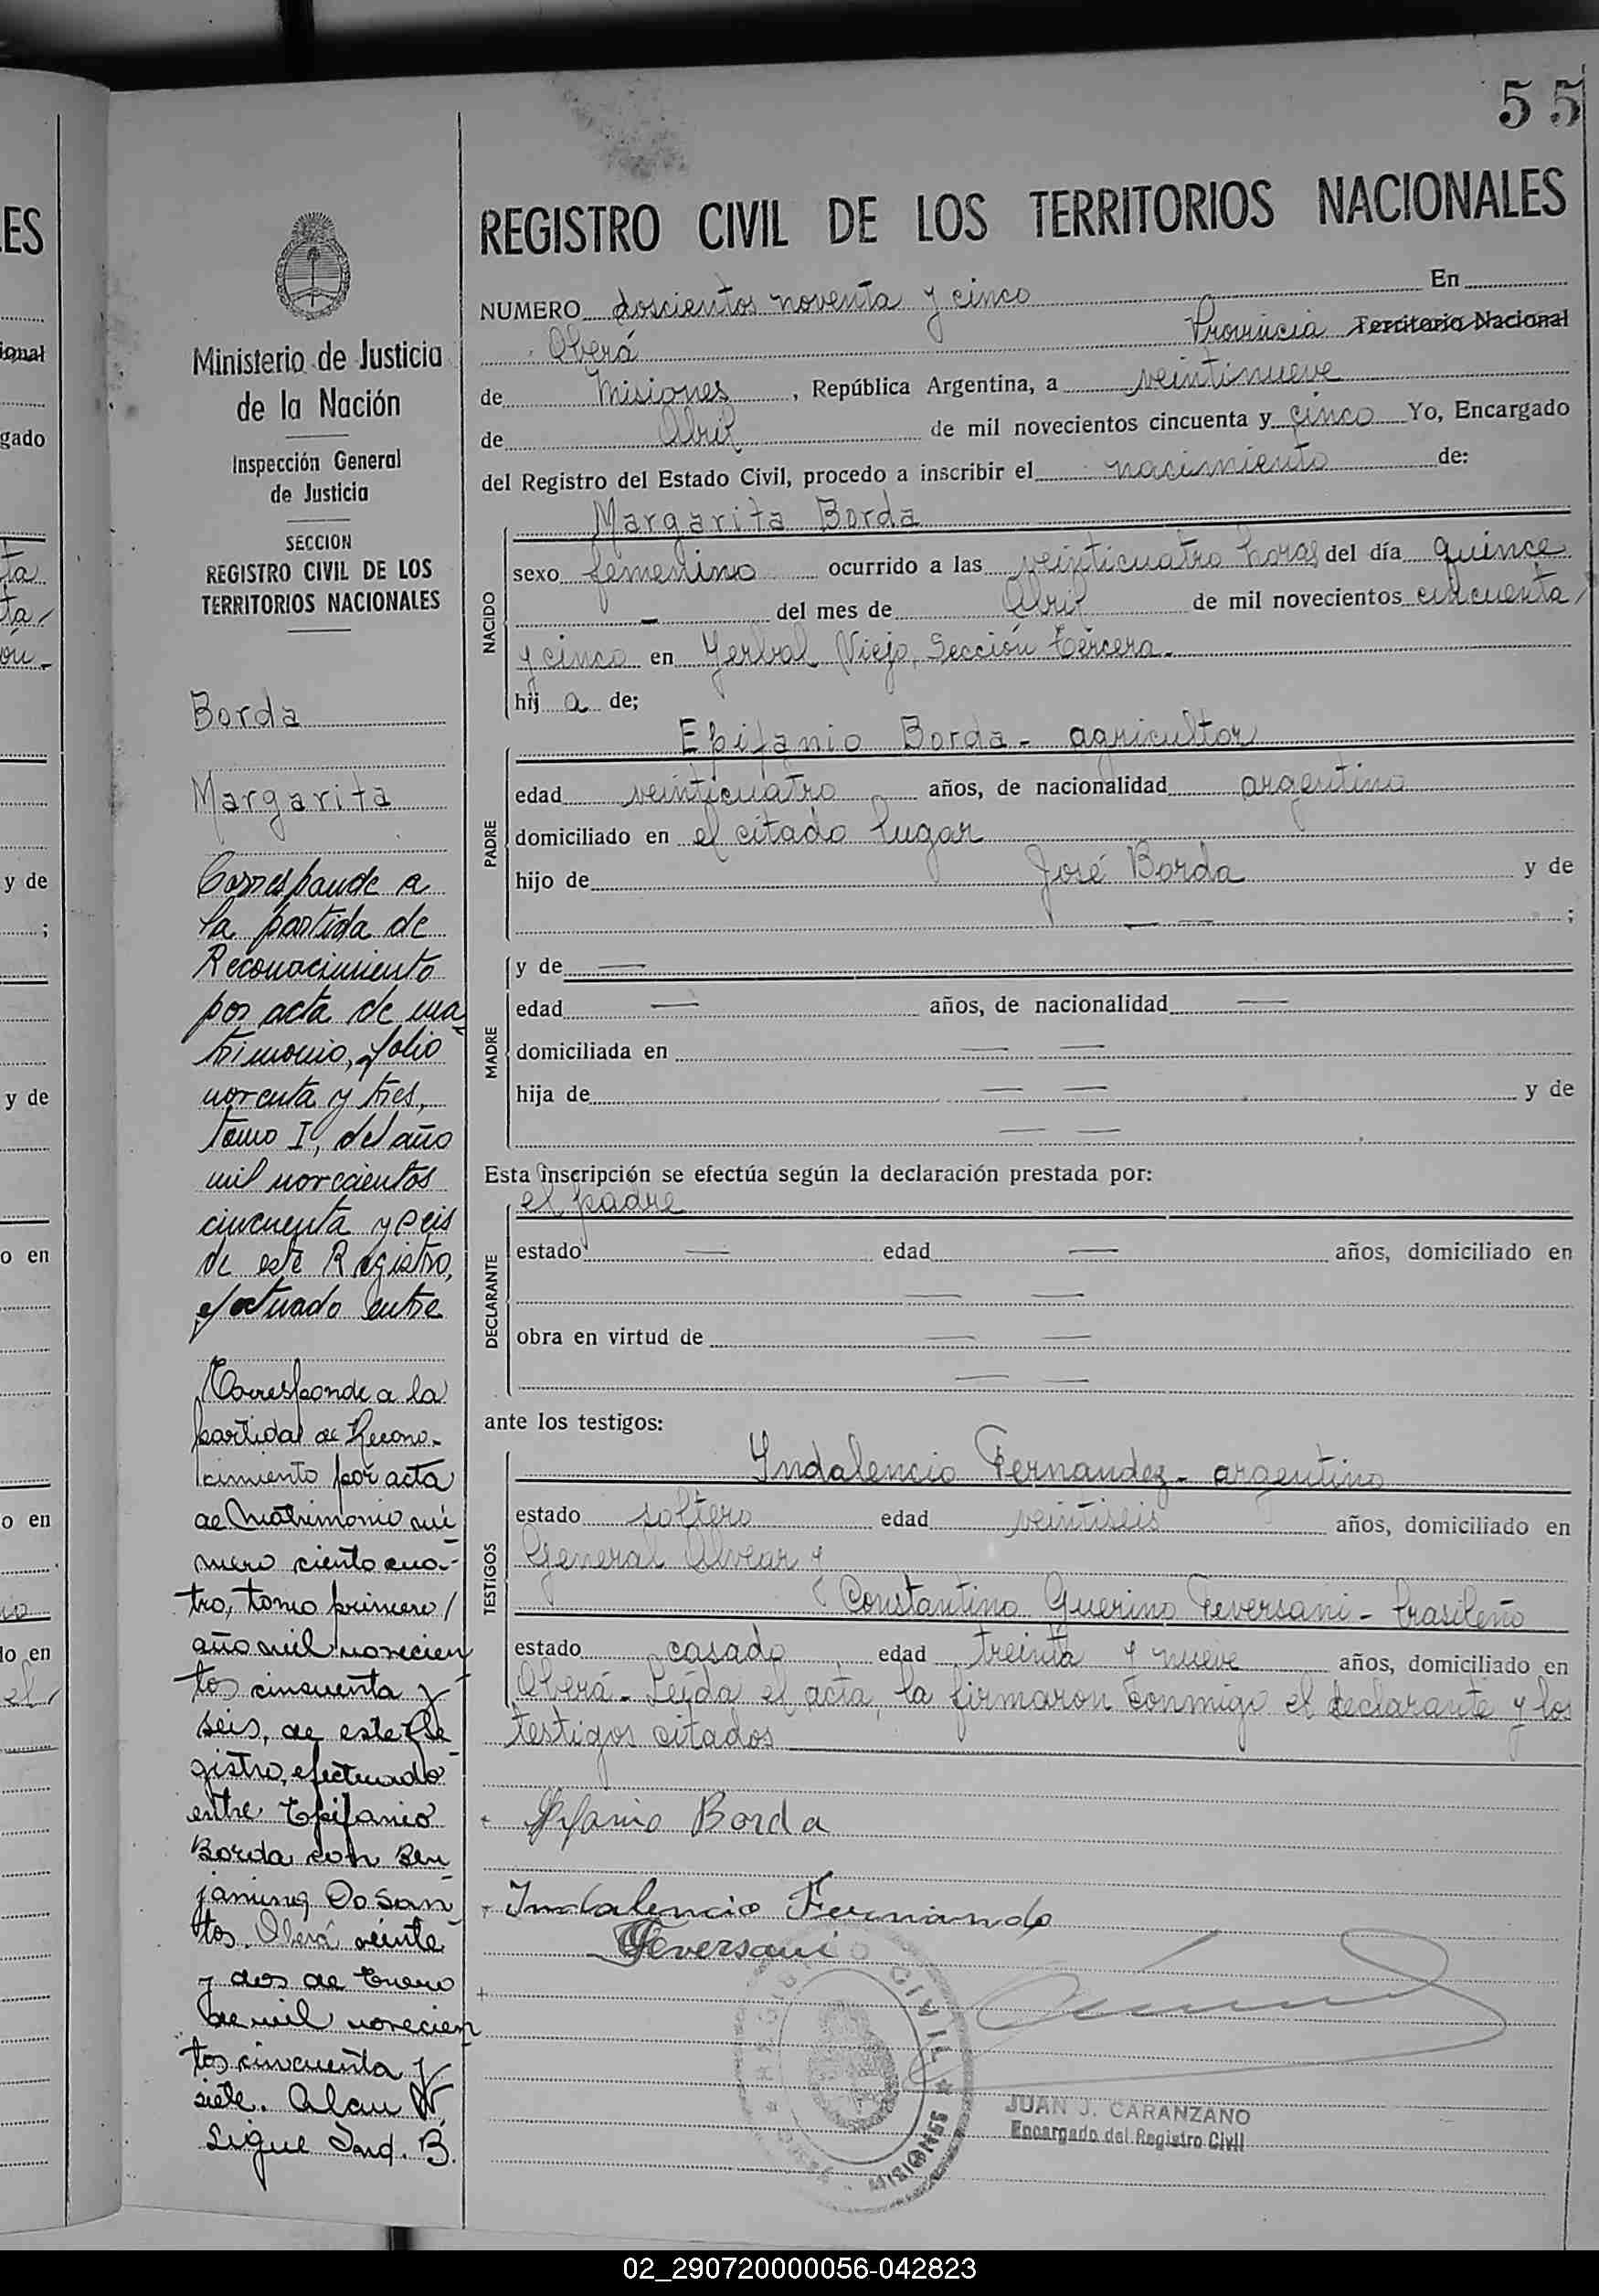 55
REGISTRO CIVIL DE LOS TERRITORIOS NACIONALES
NUMERO doscientos noventa y cinco En
Oberá Provincia Territorio Nacional
de Misiones, República Argentina, a veintinueve
de Abril de mil novecientos cincuenta y cinco Yo, Encargado
del Registro del Estado Civil, procedo a inscribir el nacimiento de:
NACIDO
Margarita Borda
sexo femenino ocurrido a las veinticuatro horas del día quince
— del mes de Abril de mil novecientos cincuenta
y cinco en Yerbal Viejo, Sección tercera.
hij a de;
PADRE
Epifanio Borda - agricultor
edad veinticuatro años, de nacionalidad argentino
domiciliado en el citado lugar
hijo de José Borda y de
— — ;
MADRE
y de —
edad — años, de nacionalidad —
domiciliada en — —
hija de — — y de
— —
Esta inscripción se efectúa según la declaración prestada por:
DECLARANTE
el padre
estado — edad — años, domiciliado en
— —
obra en virtud de — —
— —
ante los testigos:
TESTIGOS
Indalencio Fernandez - argentino
estado soltero edad veintiseis años, domiciliado en
General Alvear y
Constantino Guerino Feversani - brasileño
estado casado edad treinta y nueve años, domiciliado en
Oberá - Leída el acta, la firmaron conmigo el declarante y los
testigos citados
Borda
Indalencio Fernando
Feversani
REGISTRO CIVIL
MISIONES
JUAN J. CARANZANO
Encargado del Registro Civil
Ministerio de Justicia
de la Nación
Inspección General
de Justicia
SECCION
REGISTRO CIVIL DE LOS
TERRITORIOS NACIONALES
Borda
Margarita
Corresponde a
la partida de
Reconocimiento
por acta de ma
trimonio, folio
noventa y tres,
tomo I, del año
mil novecientos
cincuenta y seis
de este Registro,
efectuado entre
Corresponde a la
partida de Recono-
cimiento por acta
de Matrimonio nú
mero ciento cua-
tro, tomo primero/
año mil novecien
tos cincuenta y
seis, de este Re
gistro, efectuado
entre Epifanio
Borda con Ben
jamina Do San
tos. Oberá veinte
y dos de Enero
de mil novecien
tos cincuenta y
siete.
Sigue Ind. B.
ES
ional
gado
y de
;
y de
o en
o en
do en
02_290720000056-042823